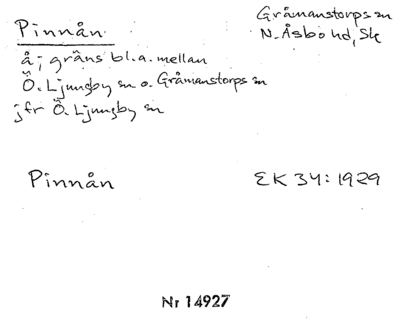 Pinnån
Gråmanstorps sn
N. Åsbo hd, Sk
å; gräns bl.a. mellan
Ö. Ljungby sn o. Gråmanstorps sn
jfr Ö. Ljungby sn
Pinnån
EK 34: 1929
Nr 14927